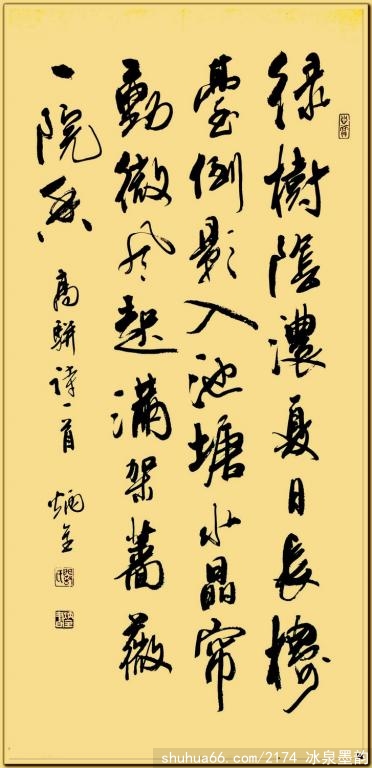 绿樹陰濃夏日長樓
臺倒影入池塘水晶帘
動微风起滿架薔薇
一院香
高駢诗一首 炳金
shuhua66.com/2174 冰泉墨韵